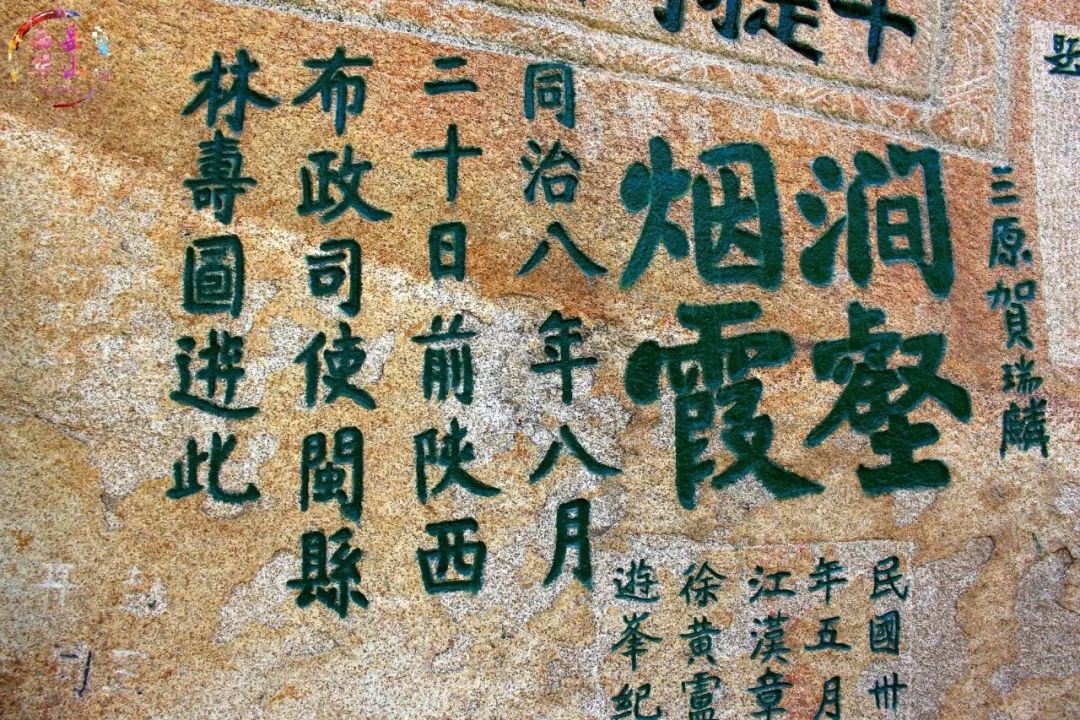 三原賀瑞麟
澗壑
烟霞
同治八年八月
二十日前陝西
布政司使閩縣
林壽圖遊此
民國卅
年五月
江漢章
徐黃盧
遊峯紀